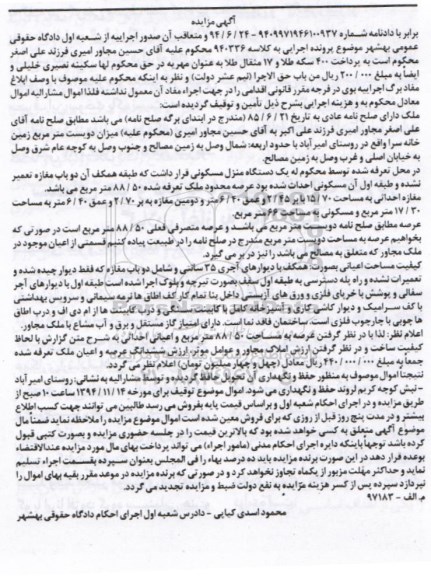 آگهی مزایده
برابر با دادنامه شماره ۹۴۰۹۹۷۱۹۴۶۱۰۰۹۳۷ - ۹۴/۶/۲۴ و متعاقب آن صدور اجراییه از شعبه اول دادگاه حقوقی
عمومی بهشهر موضوع پرونده اجرایی به کلاسه ۹۴۰۳۳۶ محکوم علیه آقای حسین مجاور امیری فرزند علی اصغر
محکوم است به پرداخت ۴۰۰ سکه طلا و ۱۷ مثقال طلا به عنوان مهریه در حق محکوم لها سکینه نصیری خلیلی و
ایضا به مبلغ ۲۰۰/۰۰۰ ریال من باب حق الاجرا (نیم عشر دولت) و نظر به اینکه محکوم علیه موصوف با وصف ابلاغ
مفاد برگ اجراییه بوی در فرجه مقرر قانونی اقدامی را در جهت اجراء مفاد آن معمول نداشته فلذا اموال مشارالیه اموال
معادل محکوم به و هزینه اجرایی بشرح ذیل تأمین و توقیف گردیده است:
ملک دارای صلح نامه عادی به تاریخ ۸۵/۶/۲۱ (مندرج در ابتدای برگه صلح نامه) می باشد مطابق صلح نامه آقای
علی اصغر مجاور امیری فرزند علی اکبر به آقای حسین مجاور امیری (محکوم علیه) میزان دویست متر مربع زمین
خانه سرا واقع در روستای امیر آباد با حدود اربعه: شمال وصل به زمین مصالح و جنوب وصل به کوچه عام شرق وصل
به خیابان اصلی و غرب وصل به زمین مصالح.
در محل تعرفه شده توسط محکوم له یک دستگاه منزل مسکونی قرار داشت که طبقه همکف آن دو باب مغازه تعمیر
نشده و طبقه اول آن مسکونی احداث شده بود عرصه محدود ملک تعرفه شده ۸۸/۵۰ متر مربع می باشد.
مغازه احداثی به مساحت ۱۵/۷۰ با بر ۲/۴۵ و عمق ۶/۴۰ متر و دومین مغازه به بر ۲/۷۰ و عمق ۶/۴۰ به مساحت
۱۷/۳۰ متر مربع و مسکونی به مساحت ۶۶ متر مربع.
عرصه مطابق صلح نامه دویست متر مربع می باشد و عرصه متصرفی فعلی ۸۸/۵۰ متر مربع است در صورتی که
بخواهیم عرصه به مساحت دویست متر مربع مندرج در صلح نامه را در طبیعت پیاده کنیم قسمتی از اعیان موجود در
ملک مجاور که متعلق به مصالح می باشد را نیز در بر می گیرد.
کیفیت مساحت اعیانی بصورت: همکف با دیوارهای آجری ۳۵ سانتی و شامل دو باب مغازه که فقط دیوار چیده شده و
تعمیرات نشده و راه پله دسترسی به طبقه اول سقف بصورت تیرچه و بلوک اجرا شده است طبقه اول با دیوارهای آجر
سفالی و پوشش با خرپای فلزی و ورق های آزبستی داخل بنا تمام کار کف اطاق ها تزئه سیمانی و سرویس بهداشتی
با کف سرامیک و دیوار کاشی کاری و آشپزخانه کامل با کابینت سنگی و درب کابینت ها از ام دی اف و درب اطاق
ها چوبی با چارچوب فلزی است. ساختمان فاقد نما است. دارای امتیاز گاز مستقل و برق و آب مشاع با ملک مجاور.
اعلام نظر: لذا با در نظر گرفتن عرصه به مساحت ۸۸/۵۰ متر مربع و اعیانی احداثی به شرح متن گزارش با لحاظ
کیفیت ساخت و در نظر گرفتن ارزش املاک مجاور و عوامل موثر، ارزش ششدانگ عرصه و اعیان ملک تعرفه شده
جمعا به مبلغ ۴۴۰/۰۰۰/۰۰۰ ریال معادل (چهل و چهار میلیون تومان) اعلام نظر می گردد.
نتیجتا اموال موصوف به منظور حفظ و نگهداری آن تحویل حافظ گردیده و توسط مشارالیه به نشانی: روستای امیر آباد
- نبش کوچه کریم لروند حفظ و نگهداری می شود. اموال موضوع توقیف برای مورخه ۱۳۹۴/۱۱/۱۴ ساعت ۱۰ صبح از
طریق مزایده و در اجرای احکام شعبه اول و براساس قیمت پایه بفروش می رسد طالبین می توانند جهت کسب اطلاع
بیشتر و در مدت پنج روز قبل از روزی که برای فروش معین شده است اموال موضوع مزایده را ملاحظه نماید ضمناً مال
موضوع آگهی متعلق به کسی خواهد شده بود که بالاترین قیمت را در جلسه حضوری مزایده و بصورت کتبی قبول
کرده باشد توجهاً باینکه دایره اجرای احکام مدنی (مامور اجرا) می تواند پرداخت بهای مال مورد مزایده عندالاقتضاء
بوعده قرار دهد در این صورت برنده مزایده باید ده درصد بهاء را فی المجلس بعنوان سپرده بقسمت اجراء تسلیم
نماید و حداکثر مهلت مزبور از یکماه تجاوز نخواهد کرد و در صورتی که برنده مزایده در موعد مقرر بقیه بهای اموال را
نپردازد سپرده پس از کسر هزینه مزایده به نفع دولت ضبط و مزایده تجدید می گردد.
م.الف - ۹۷۱۸۳
محمود اسدی کیاپی - دادرس شعبه اول اجرای احکام دادگاه حقوقی بهشهر